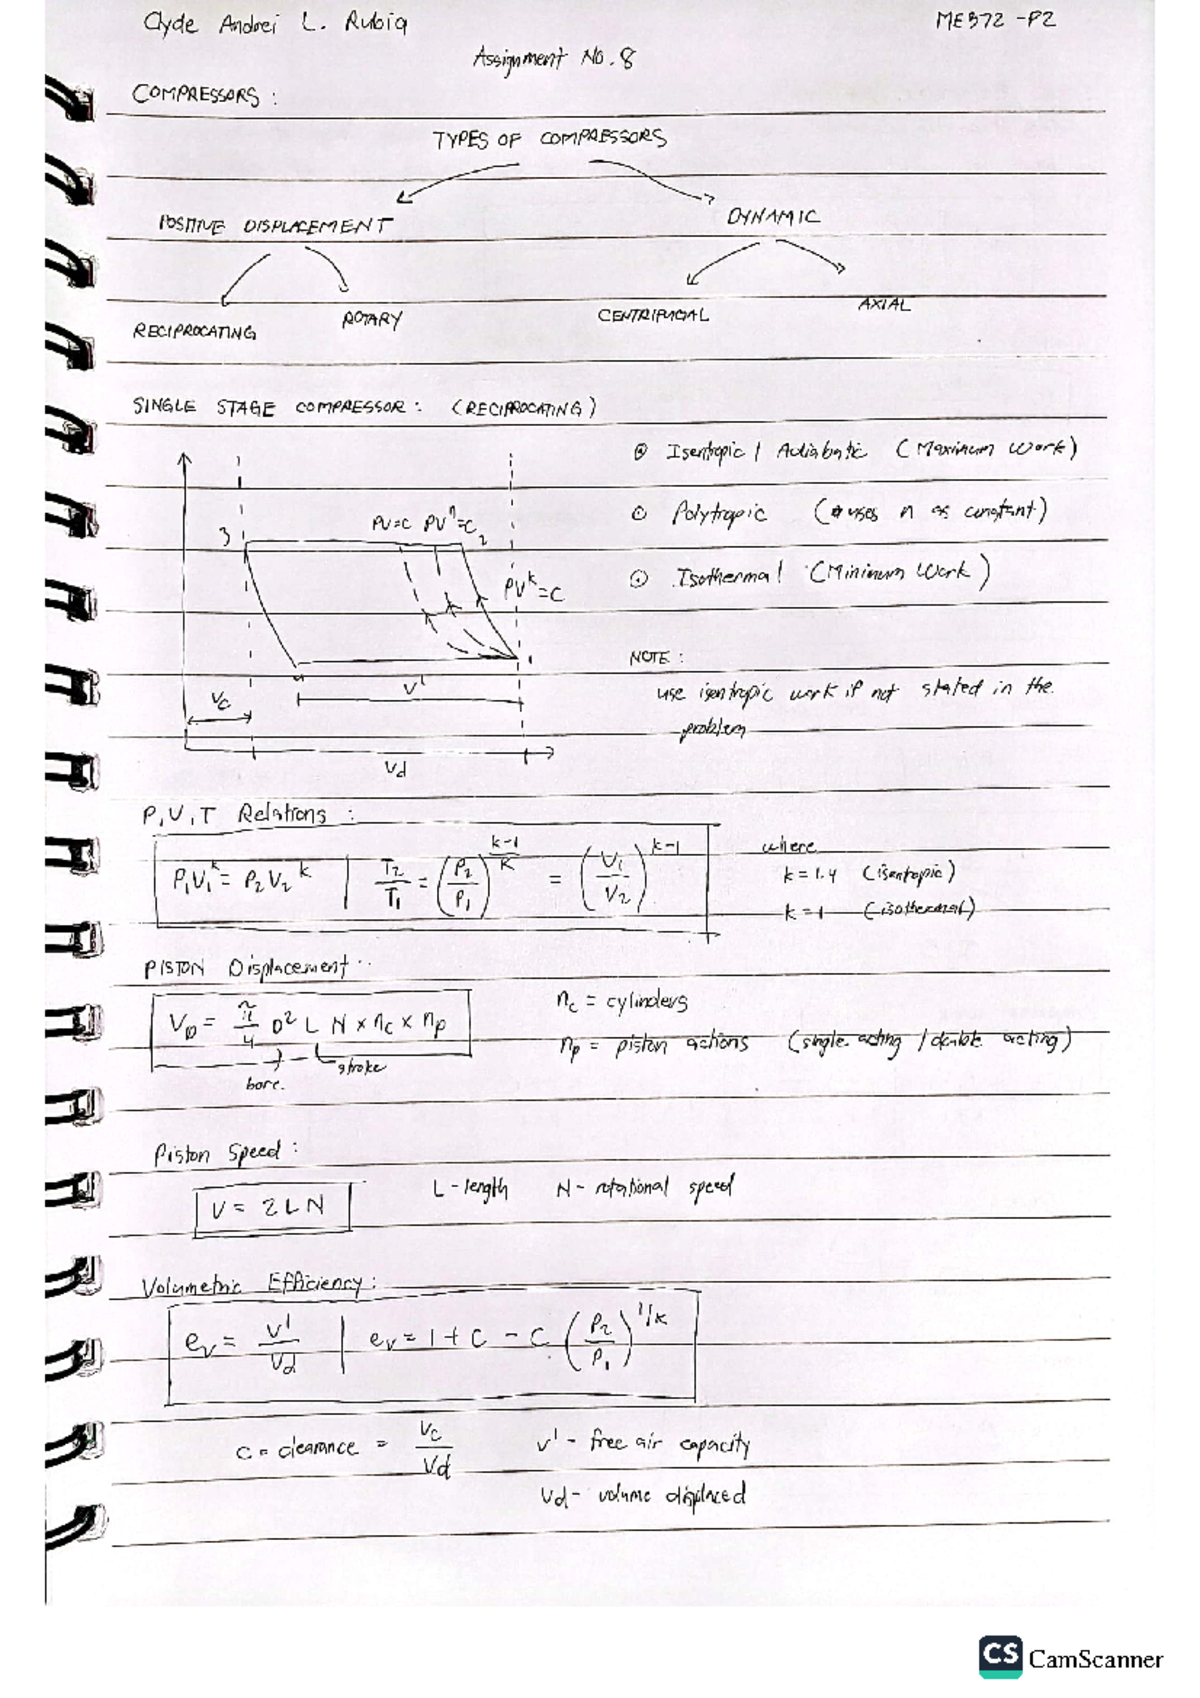 Clyde Andrei L. Rubia
ME372 -P2
Assignment No. 8
COMPRESSORS :
TYPES OF COMPRESSORS
POSITIVE DISPLACEMENT
DYNAMIC
RECIPROCATING
ROTARY
CENTRIFUGAL
AXIAL
SINGLE STAGE COMPRESSOR : (RECIPROCATING)
Isentropic / Adiabatic (Maximum Work)
Polytropic (uses n as constant)
Isothermal (Minimum Work)
PV=C PVⁿ=C 2
3
PVᵏ=C
1
V'
Vc
Vd
NOTE :
use isentropic work if not stated in the
problem
P, V, T Relations :
P₁V₁ᵏ = P₂V₂ᵏ | T₂/T₁ = (P₂/P₁)^((k-1)/k) = (V₁/V₂)^(k-1)
where
k = 1.4 (isentropic)
k = 1 (isothermal)
PISTON Displacement
V_D = π/4 D² L N × nc × np
bore.
stroke
nc = cylinders
np = piston actions (single acting / double acting)
Piston Speed :
V = 2LN
L - length N - rotational speed
Volumetric Efficiency :
ev = V'/Vd | ev = 1 + C - C (P₂/P₁)^(1/k)
C = clearance = Vc/Vd
V' - free air capacity
Vd - volume displaced
CS CamScanner